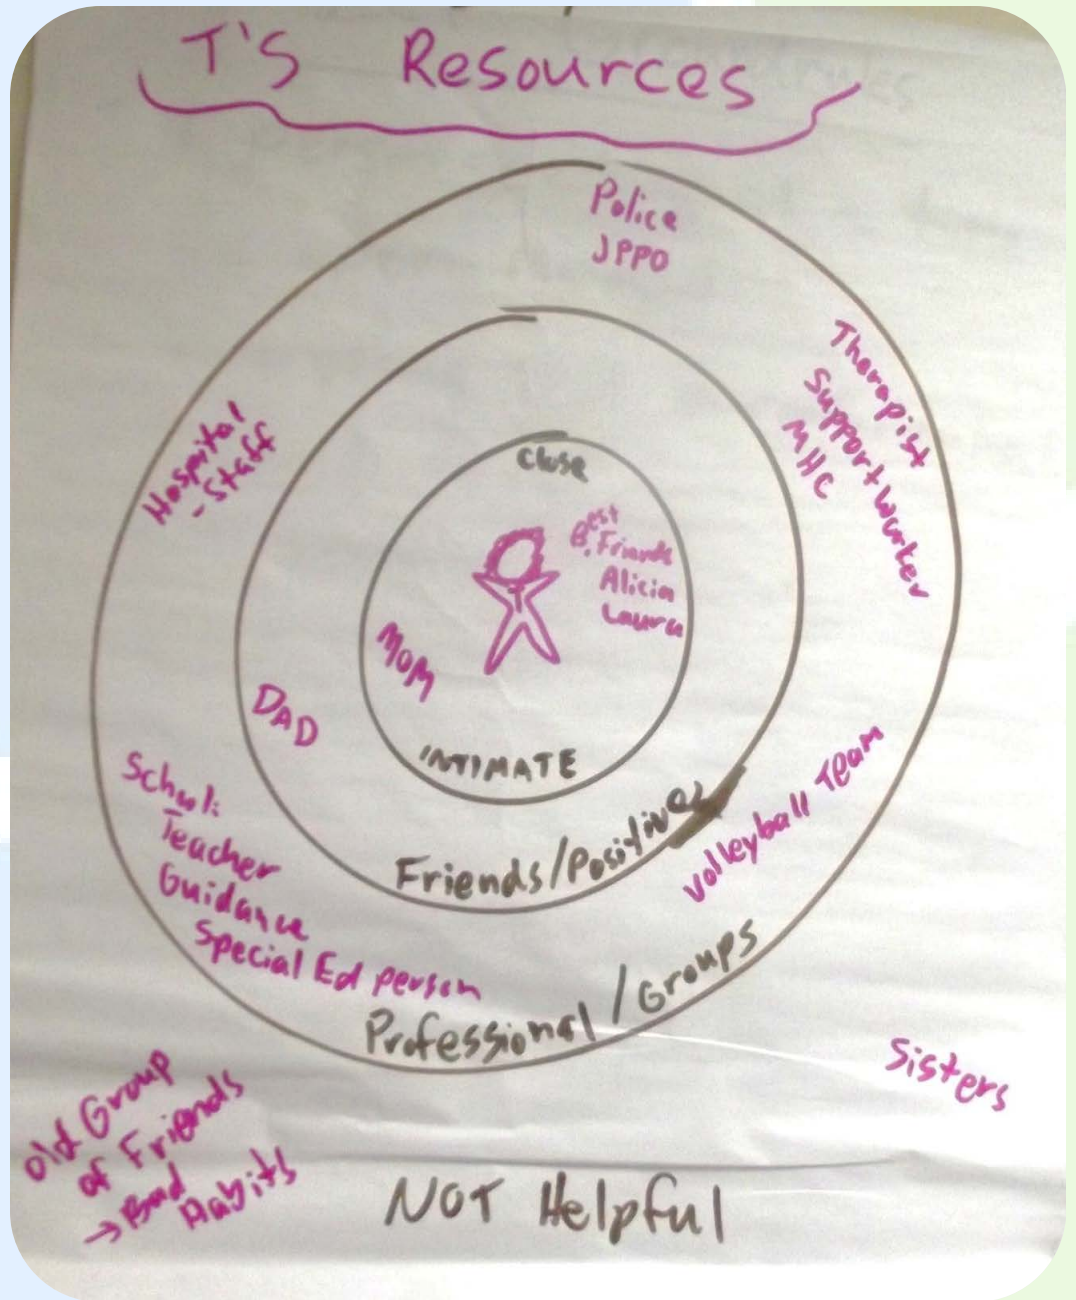 T's Resources
Police
JPPO
Therapist
Support Worker
MHC
Hospital
- Staff
Close
Best
Friends
Alicia
Laura
T
MOM
DAD
INTIMATE
Friends/Positives
Volleyball Team
School:
Teacher
Guidance
Special Ed person
Professional/Groups
Sisters
Old Group
of Friends
→ Bad
Habits
NOT Helpful